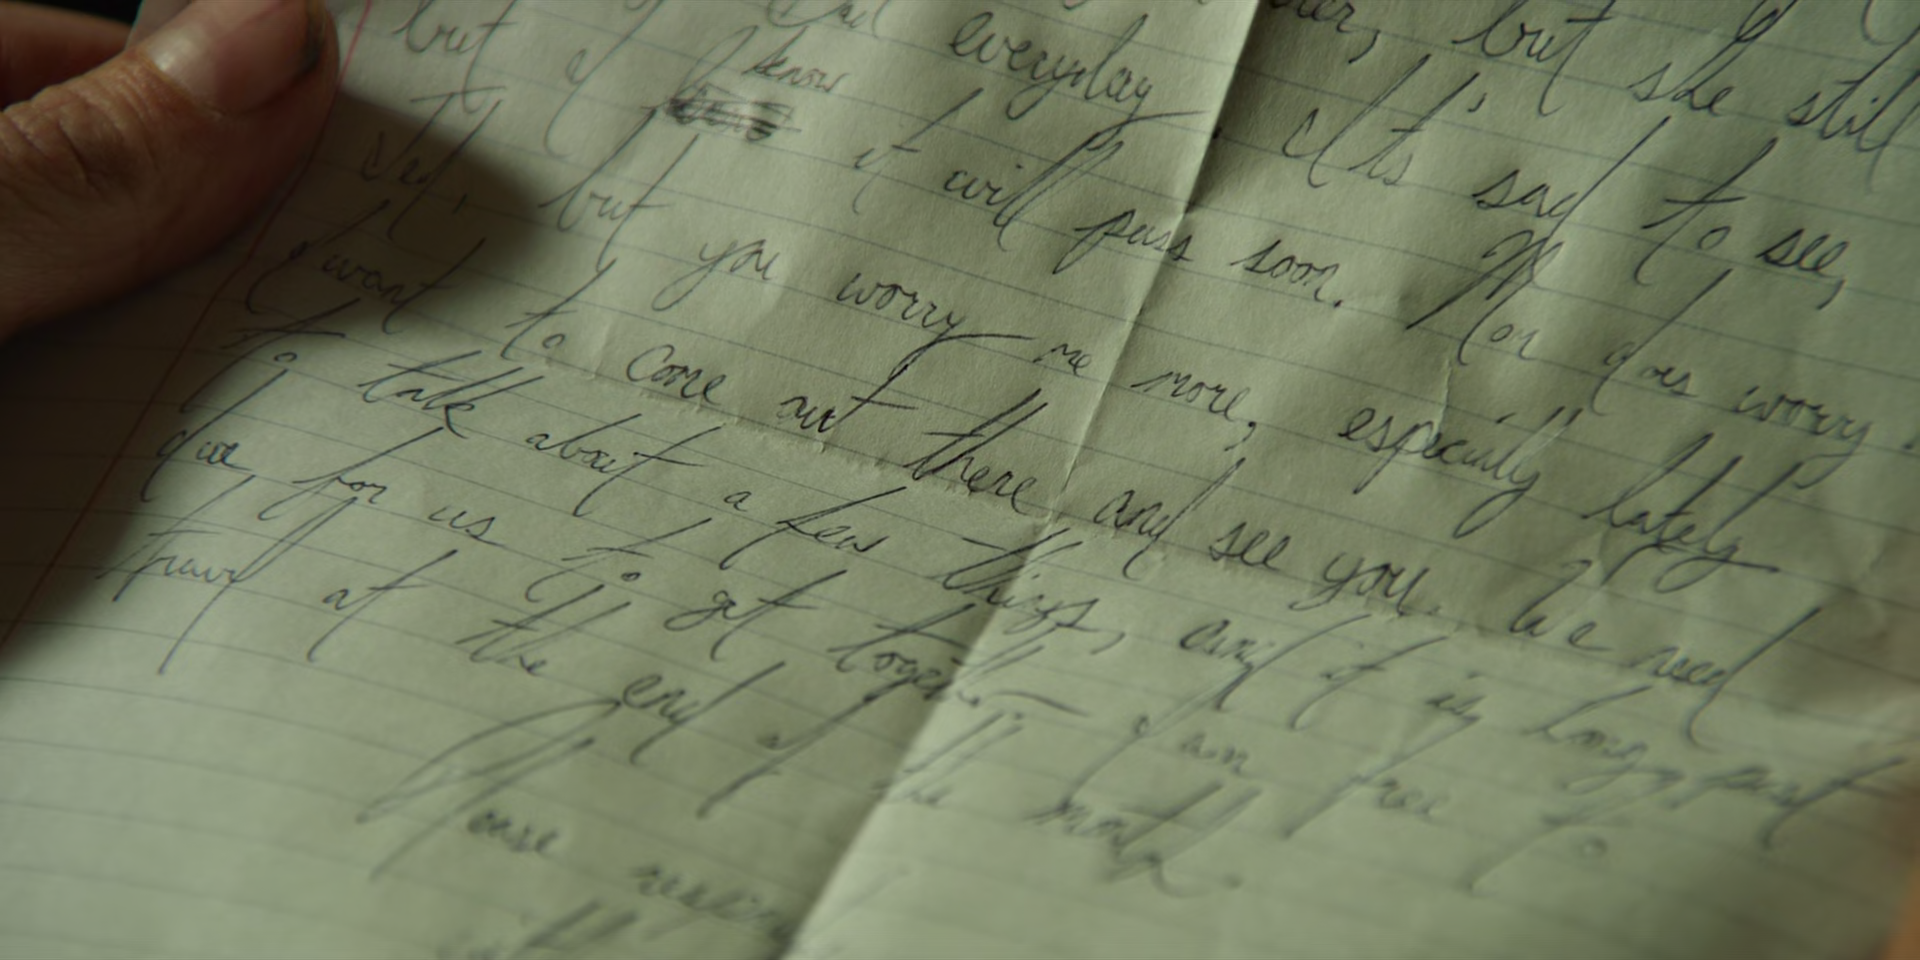 but she still
Dad everyday. It's sad to see,
but I know it will pass soon. does worry
but you worry me more, especially lately
I want to come out there and see you. We need
to talk about a few things, and it is long past
due for us to get together. I am free to
travel at the end of the month.
Please